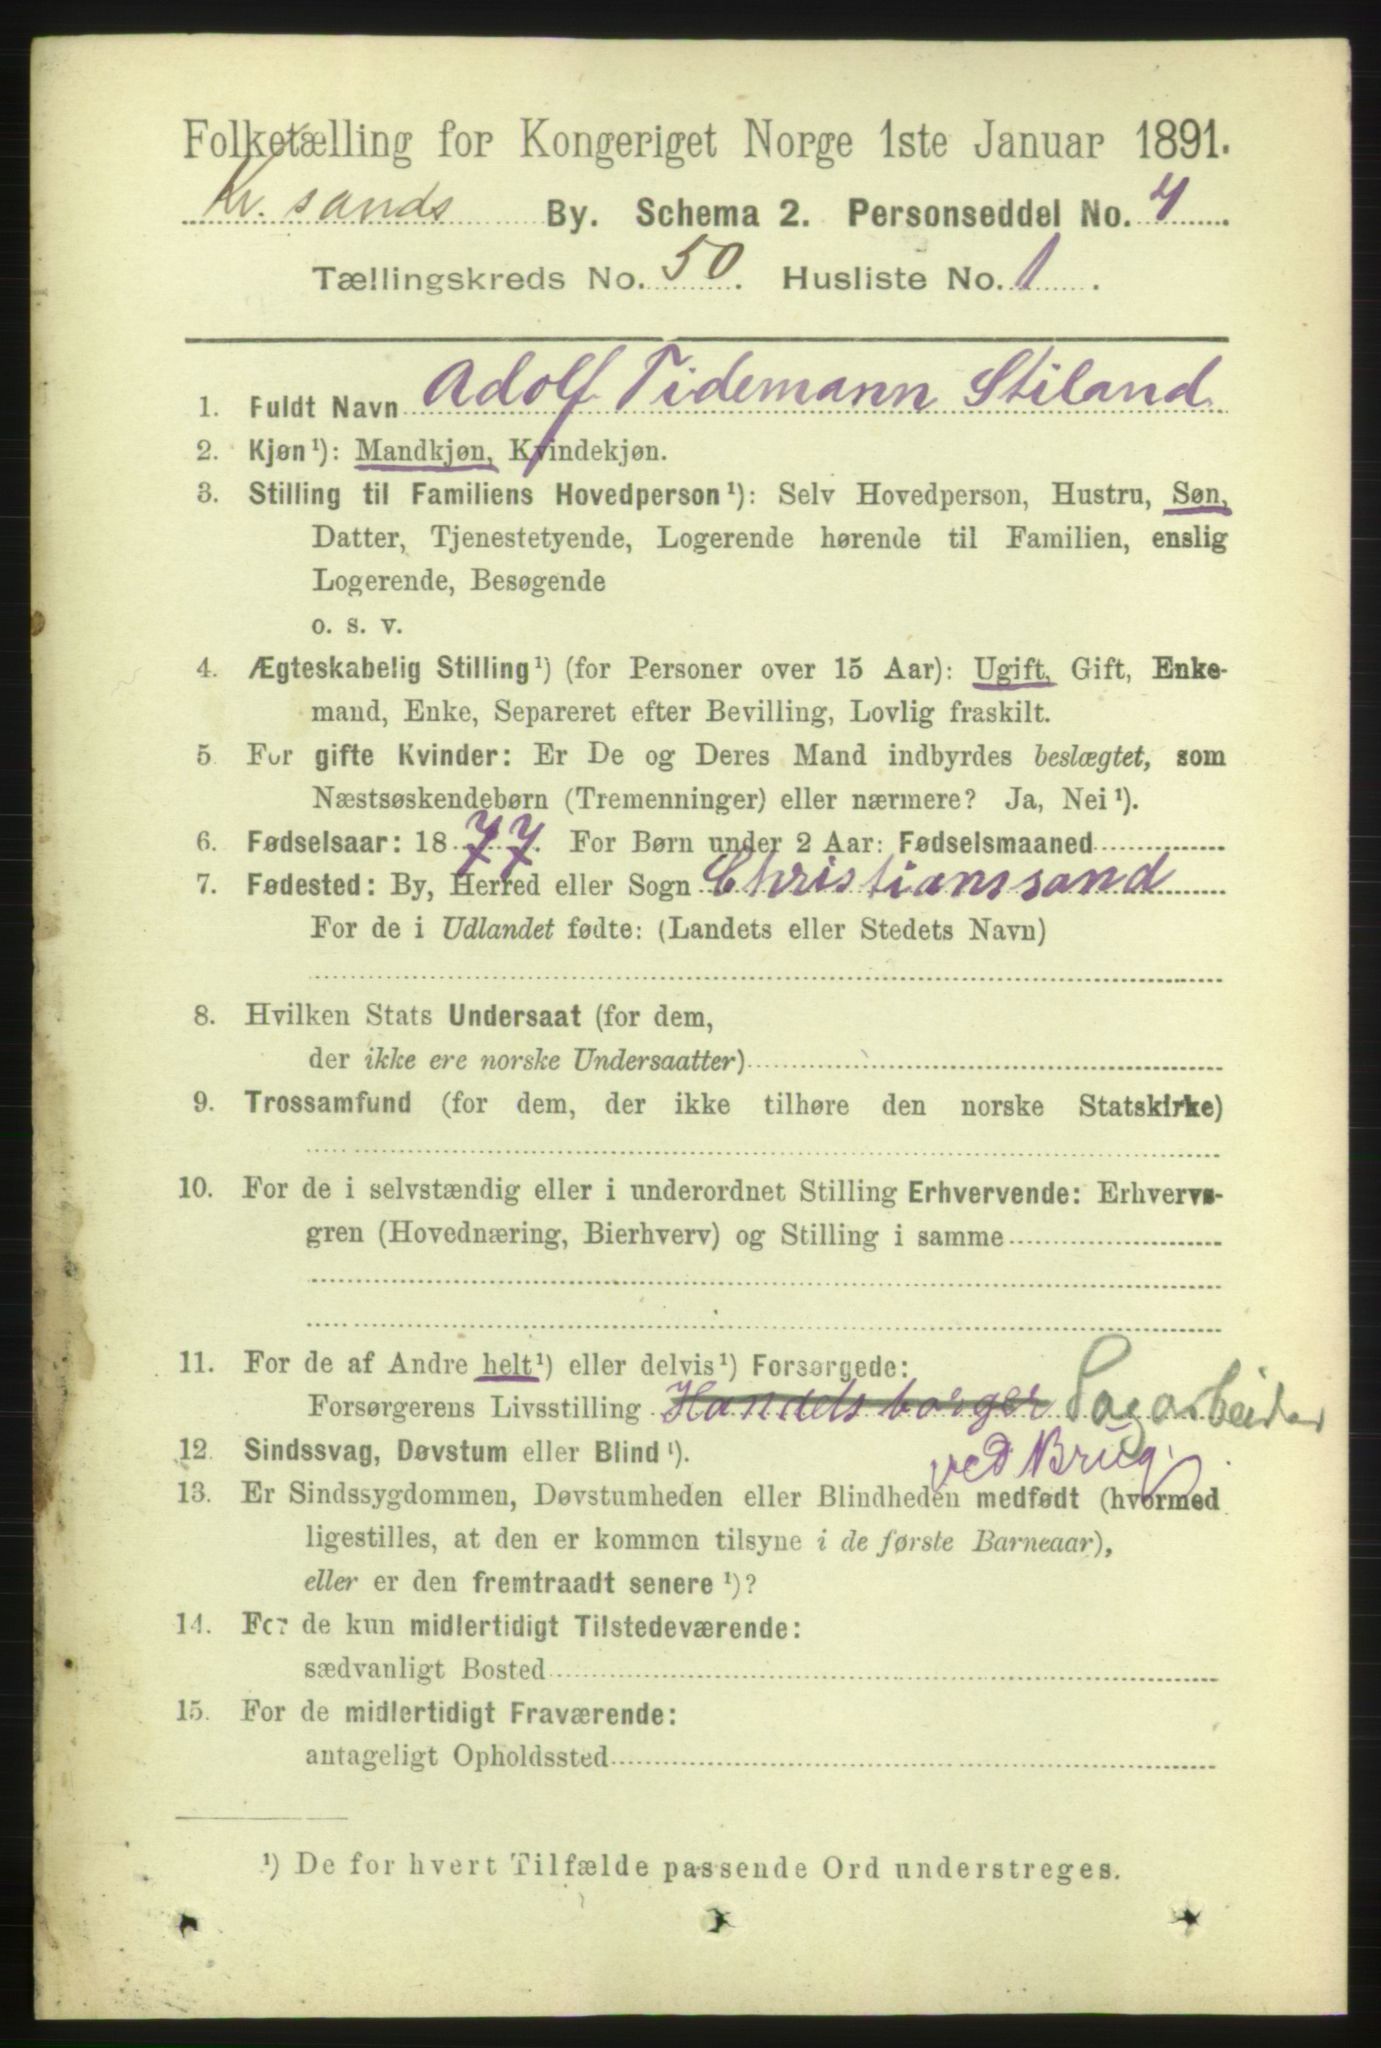 Folketælling for Kongeriget Norge 1ste Januar 1891.
Kr. sands By. Schema 2. Personseddel No. 4
Tællingskreds No. 50. Husliste No. 1.
1. Fuldt Navn Adolf Tidemann Stiland
2. Kjøn¹): Mandkjøn, Kvindekjøn.
3. Stilling til Familiens Hovedperson¹): Selv Hovedperson, Hustru, Søn,
Datter, Tjenestetyende, Logerende hørende til Familien, enslig
Logerende, Besøgende
o. s. v.
4. Ægteskabelig Stilling¹) (for Personer over 15 Aar): Ugift, Gift, Enke-
mand, Enke, Separeret efter Bevilling, Lovlig fraskilt.
5 For gifte Kvinder: Er De og Deres Mand indbyrdes beslægtet, som
Næstsøskendebørn (Tremenninger) eller nærmere? Ja, Nei¹).
6. Fødselsaar: 1877. For Børn under 2 Aar: Fødselsmaaned
7. Fødested: By, Herred eller Sogn Christianssand
For de i Udlandet fødte: (Landets eller Stedets Navn)
8. Hvilken Stats Undersaat (for dem,
der ikke ere norske Undersaatter)
9. Trossamfund (for dem, der ikke tilhøre den norske Statskirke)
10. For de i selvstændig eller i underordnet Stilling Erhvervende: Erhvervs-
gren (Hovednæring, Bierhverv) og Stilling i samme
11. For de af Andre helt¹) eller delvis¹) Forsørgede:
Forsørgerens Livsstilling Handelsborger Sagarbeider
ved Brug.
12. Sindssvag, Døvstum eller Blind¹).
13. Er Sindssygdommen, Døvstumheden eller Blindheden medfødt (hvormed
ligestilles, at den er kommen tilsyne i de første Barneaar),
eller er den fremtraadt senere¹)?
14. For de kun midlertidigt Tilstedeværende:
sædvanligt Bosted
15. For de midlertidigt Fraværende:
antageligt Opholdssted
¹) De for hvert Tilfælde passende Ord understreges.